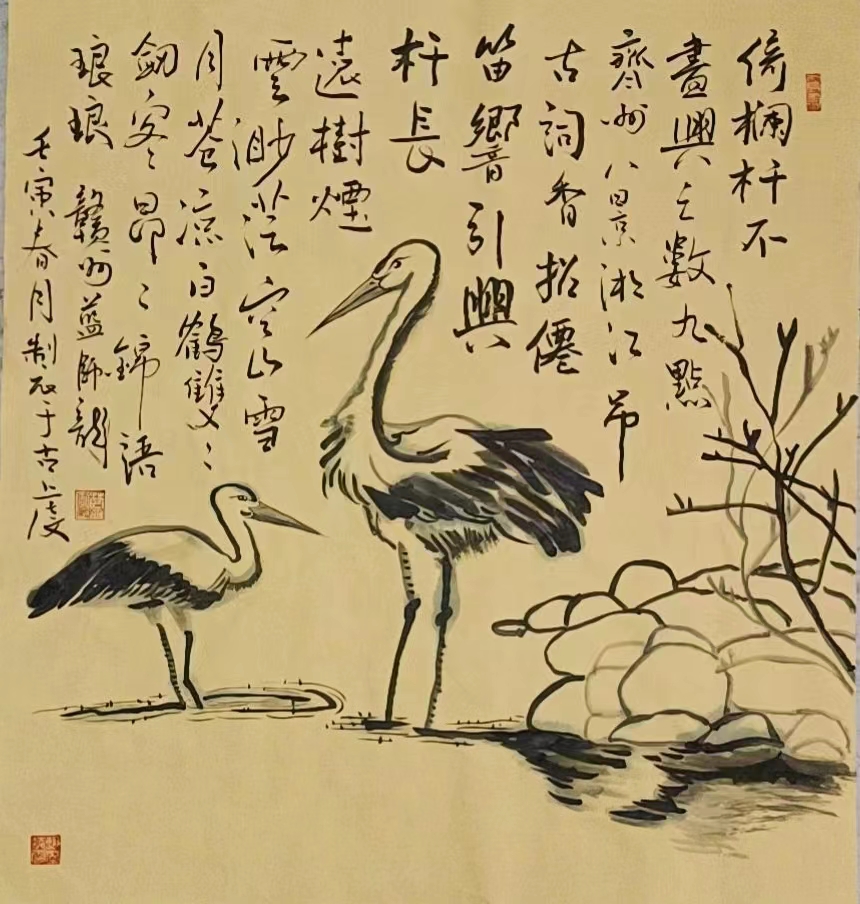 倚欄杆不
盡興之數九點
齊州八景湘江吊
古詞香招僊
笛響引興
杆長
遠樹煙
雲渺茫空山雪
月蒼涼白鶴雙〻
劒客〻昂〻錦語
琅琅 贛州藍師龍
壬寅春月制於于古虔